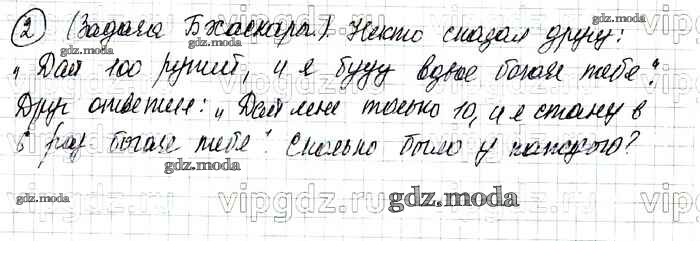 ② (Задача Бхаскары). Некто сказал другу:
„Дай 100 рупий, и я буду вдвое богаче тебя".
Друг ответил: „Дай мне только 10, и я стану в
6 раз богаче тебя". Сколько было у каждого?
gdz.moda
gdz.moda
gdz.moda
gdz.moda
gdz.moda
gdz.moda
vipgdz.ru
vipgdz